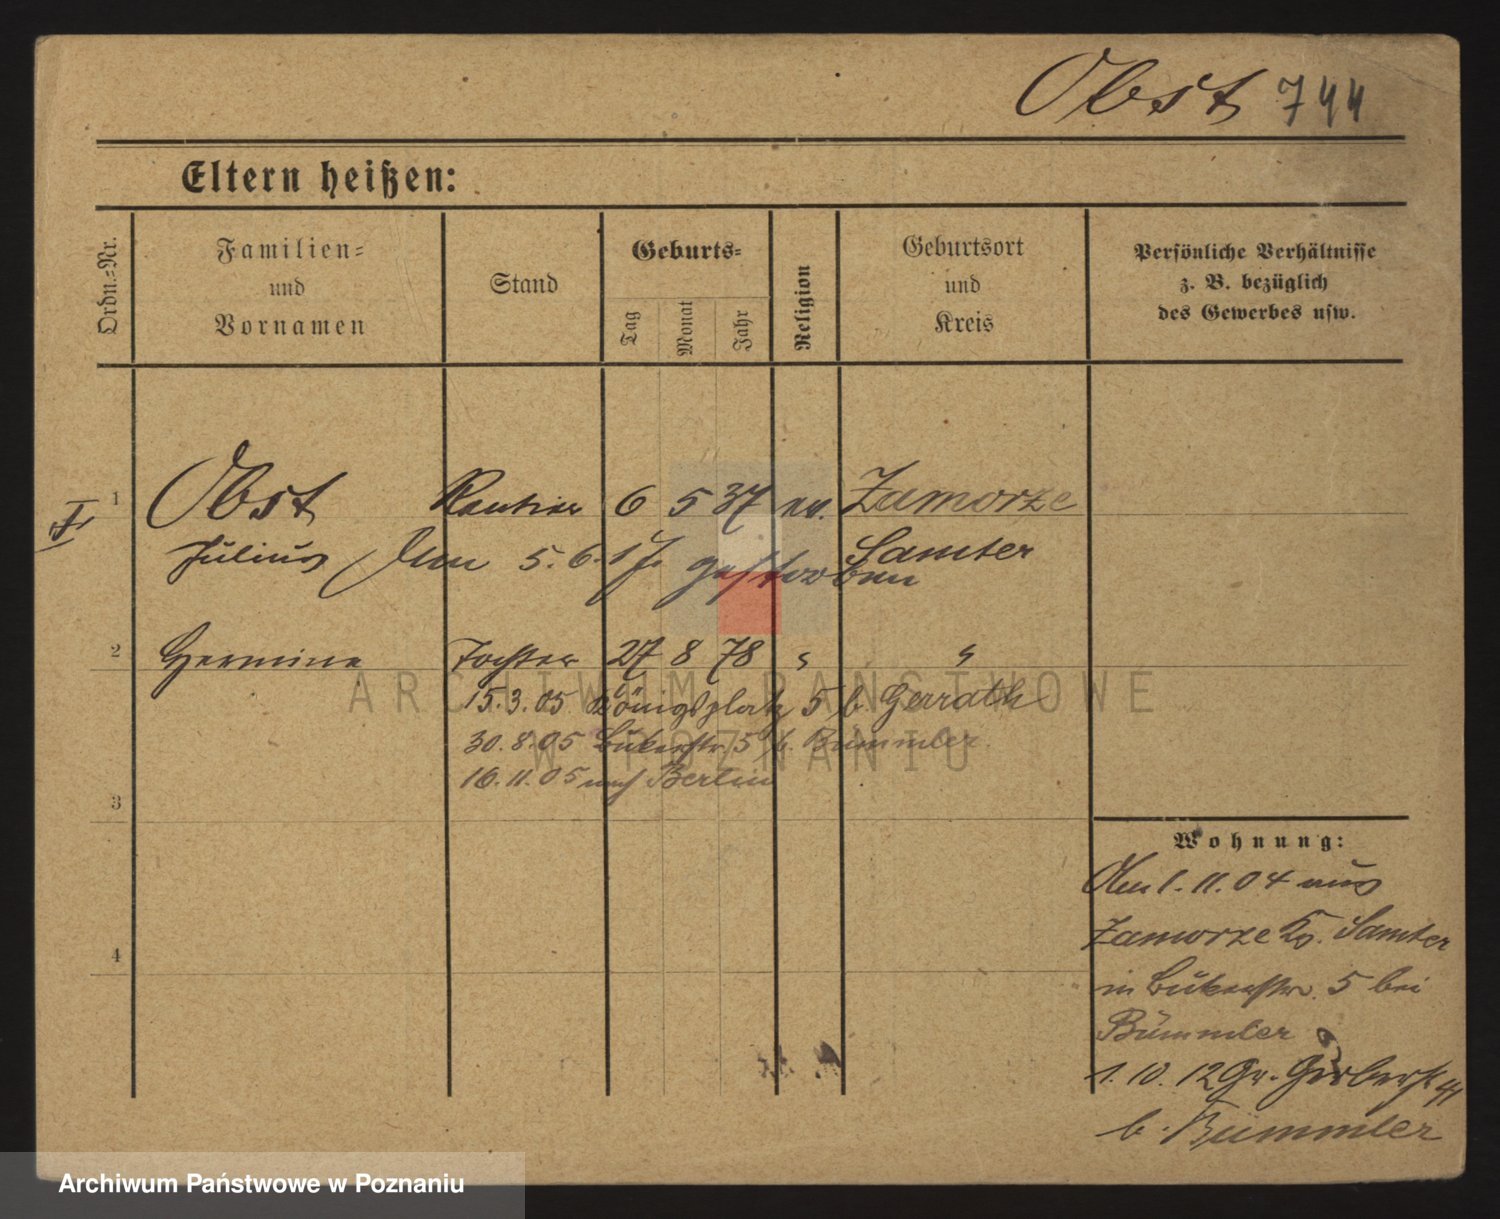 Obst 744
Eltern heißen:
Ordn.-Nr.
Familien-
und
Vornamen
Stand
Geburts-
Tag
Monat
Jahr
Religion
Geburtsort
und
Kreis
Persönliche Verhältnisse
z. B. bezüglich
des Gewerbes usw.
1 Obst Rentier 6 5 37 ev. Zamorze
Julius Am 5. 6. gestorben Samter
2 Hermine Tochter 27 8 78 " "
15.3.05 Königsplatz 5 b. Gerrath
30.8.05 Bükerstr. 5 b. Bümmler
16.11.05 nach Berlin
3
4
Wohnung:
Am 1. 11. 04 aus
Zamorze Kr. Samter
in Bükerstr. 5 bei
Bümmler
1. 10. 12 Gr. Gerberstr
b. Bümmler
ARCHIWUM PAŃSTWOWE
W POZNANIU
Archiwum Państwowe w Poznaniu